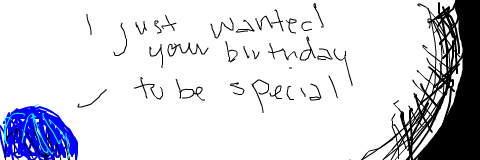 I just wanted
your birthday
to be special